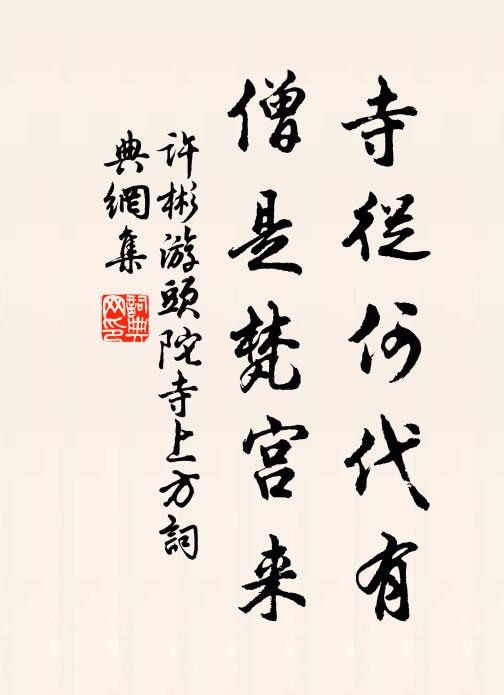 寺從何代有
僧是梵宮来
许彬游頭陀寺上方詞
典網集
詞典
网印